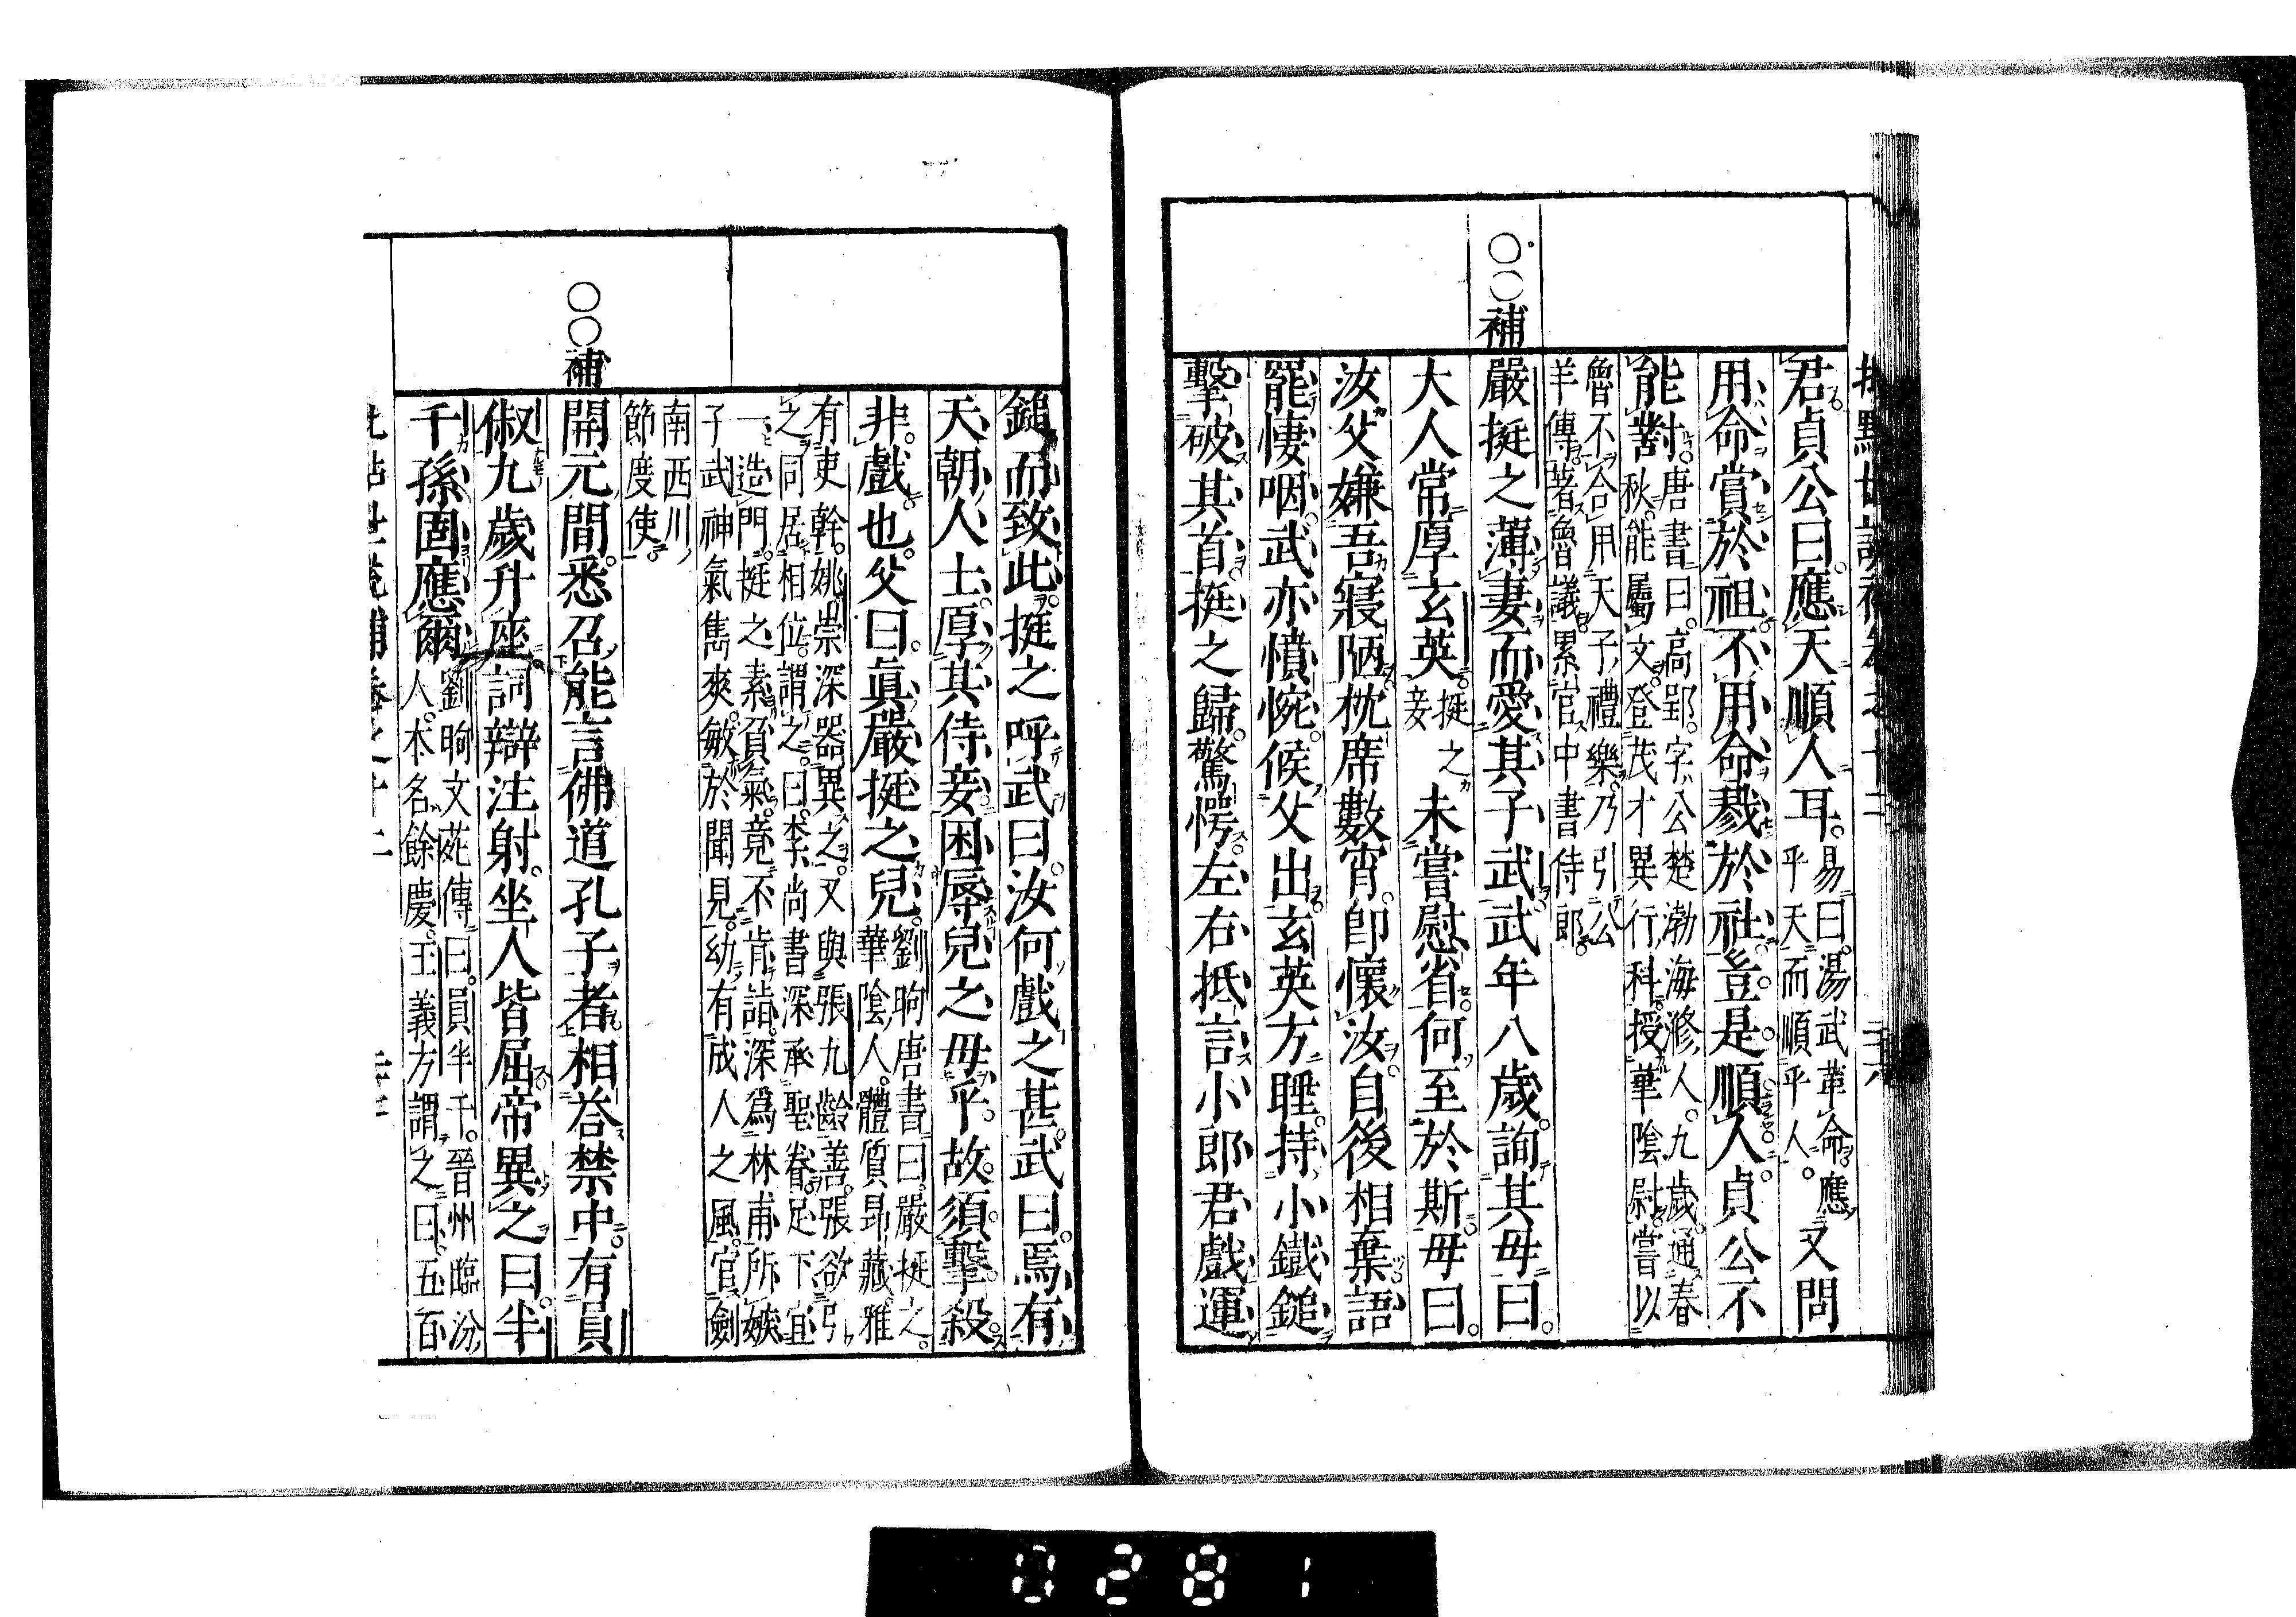 君貞公曰應天順人耳易曰湯武革命應
乎天而順乎人又問
用命賞於祖不用命戮於社豈是順人貞公不
能對唐書曰高郢字公楚渤海滫人九歲通春
秋能屬文登茂才異行科授華陰尉嘗以
魯不合用天子禮樂乃引公
羊傳著魯議累官中書侍郎
〇〇補
嚴挺之薄妻而愛其子武武年八歲詢其母曰
大人常厚玄英挺之
妾未嘗慰省何至於斯母曰
汝父嫌吾寢陋枕席數宵卽懷汝自後相棄語
罷悽咽武亦憤惋候父出玄英方睡持小鐵鎚
擊破其首挺之歸驚愕左右抵言小郎君戲運
鎚而致此挺之呼武曰汝何戲之甚武曰焉有
天朝人士厚其侍妾困辱兒之母乎故須擊殺
非戲也父曰眞嚴挺之兒劉昫唐書曰嚴挺之
華陰人體質昂藏雅
有吏幹姚崇深器異之又與張九齡善張欲引
之同居相位謂之曰李尚書深承聖眷足下宜
一造門挺之素負氣竟不肯詣深爲林甫所嫉
子武神氣雋爽敏於聞見幼有成人之風官劍
南西川
節度使
〇〇補
開元間悉召能言佛道孔子者相荅禁中有員
俶九歲升座詞辯注射坐人皆屈帝異之曰半
千孫固應爾劉昫文苑傳曰員半千晉州臨汾
人本名餘慶王義方謂之曰五百